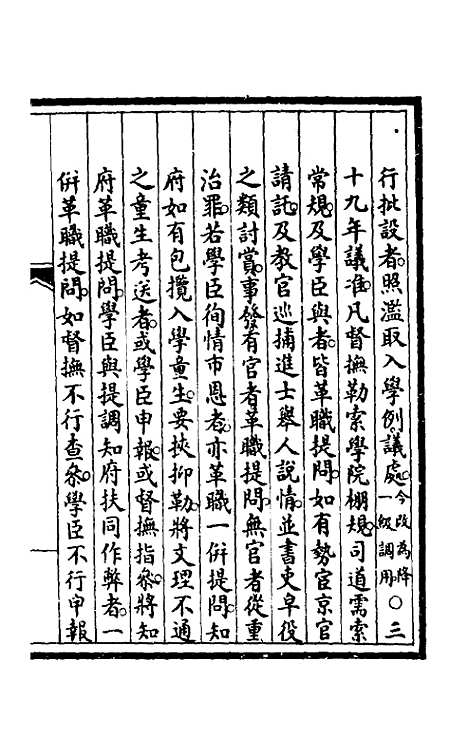 行批設者照濫取入學例議處今改為降一級調用〇三
十九年議准凡督撫勒索學院棚規司道需索
常規及學臣與者皆革職提問如有勢宦京官
請託及教官巡捕進士舉人說情並書吏皁役
之類討賞事發有官者革職提問無官者從重
治罪若學臣徇情市恩者亦革職一併提問知
府如有包攬入學童生要挾抑勒將文理不通
之童生考送者或學臣申報或督撫指叅將知
府革職提問學臣與提調知府扶同作弊者一
併革職提問如督撫不行查叅學臣不行申報